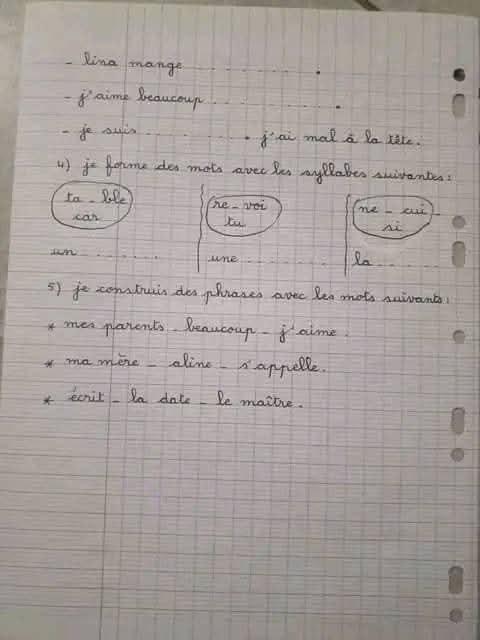 - lina mange ................ .
- j'aime beaucoup ................ .
- je suis ................ . j'ai mal à la tête.
4) je forme des mots avec les syllabes suivantes :
ta - ble car
re - voi tu
ne - cui - si
un ............
une ............
la ............
5) je construis des phrases avec les mots suivants :
* mes parents - beaucoup - j'aime.
* ma mère - aline - s'appelle.
* écrit - la date - le maître.